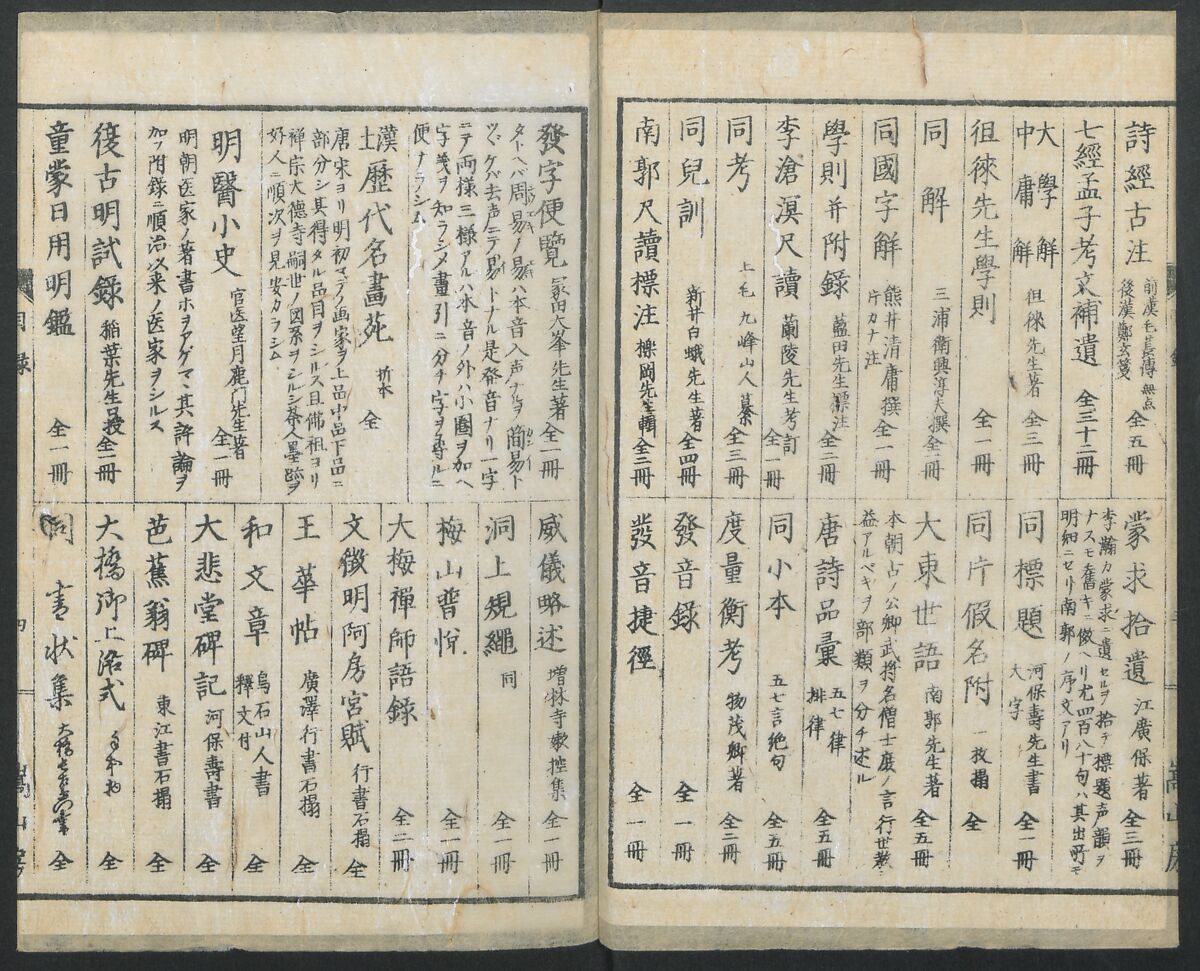 詩經古注 前漢毛萇傳 無点 後漢鄭玄箋 全五冊
七經孟子考文補遺 全三十二冊
大學解 中庸解 徂徠先生著 全三冊
徂徠先生學則 全一冊
同解 三浦衛興淳夫撰 全二冊
同國字解 熊井清庸撰 片カナ注 全一冊
學則并附錄 藍田先生標注 全二冊
李滄溟尺讀 蘭陵先生考訂 全一冊
同考 上毛 九峰山人纂 全三冊
同兒訓 新井白蛾先生著 全四冊
南郭尺讀標注 櫟岡先生輯 全三冊
蒙求拾遺 江廣保著 全三冊
李瀚カ蒙求ニ遺セルヲ拾テ標題声韻ヲ
ナスモ舊キニ倣ヘリ尤四百八十句ハ其出所モ
明細ニセリ南郭ノ序文アリ
同標題 河保壽先生書 大字 全一冊
同片假名附 一枚搨 全
大東世語 南郭先生著 全五冊
本朝占ノ公卿武将名僧士庶ノ言行世教
益アルベキヲ部類ヲ分チ述ル
唐詩品彙 五七律 排律 全五冊
同小本 五七言絶句 全五冊
度量衡考 物茂卿著 全二冊
發音錄 全一冊
發音捷徑 全一冊
嵩山房
發字便覽 冢田大峯先生著 全一冊
タトヘバ周易ノ易ハ本音入声ナルヲ簡易ト
ツヾケバ去声ニテ易トナル是発音ナリ一字
ニテ両様三様アルハ本音ノ外ハ小圏ヲ加ヘ
字義ヲ知ラシメ畫引ニ分チ字ヲ尋ルニ
便ナラシム
漢土歴代名畫苑 折本 全
唐宋ヨリ明初マデノ画家ヲ上品中品下品ニ
部分シ其得タル品目ヲシルス且佛祖ヨリ
禅宗大徳寺嗣世ノ図系ヲシルシ茶人墨跡ヲ
好人ニ順次ヲ見安カラシム
明醫小史 官医望月鹿門先生著 全一冊
明朝医家ノ著書ホヲアゲマヽ其評論ヲ
加フ附錄ニ順治以来ノ医家ヲシルス
復古明試錄 稲葉先生口授 全一冊
童蒙日用明鑑 全一冊
威儀略述 増林寺嫩控集 全一冊
洞上規繩 同 全一冊
梅山普悦 全一冊
大梅禪師語錄 全二冊
文徵明阿房宮賦 行書石搨 全
王華帖 廣澤行書石搨 全
和文章 烏石山人書 釋文付 全
大悲堂碑記 河保壽書 全
芭蕉翁碑 東江書石搨 全
大橋御上洛式 全
同 書状集 全
目錄 四
嵩山房